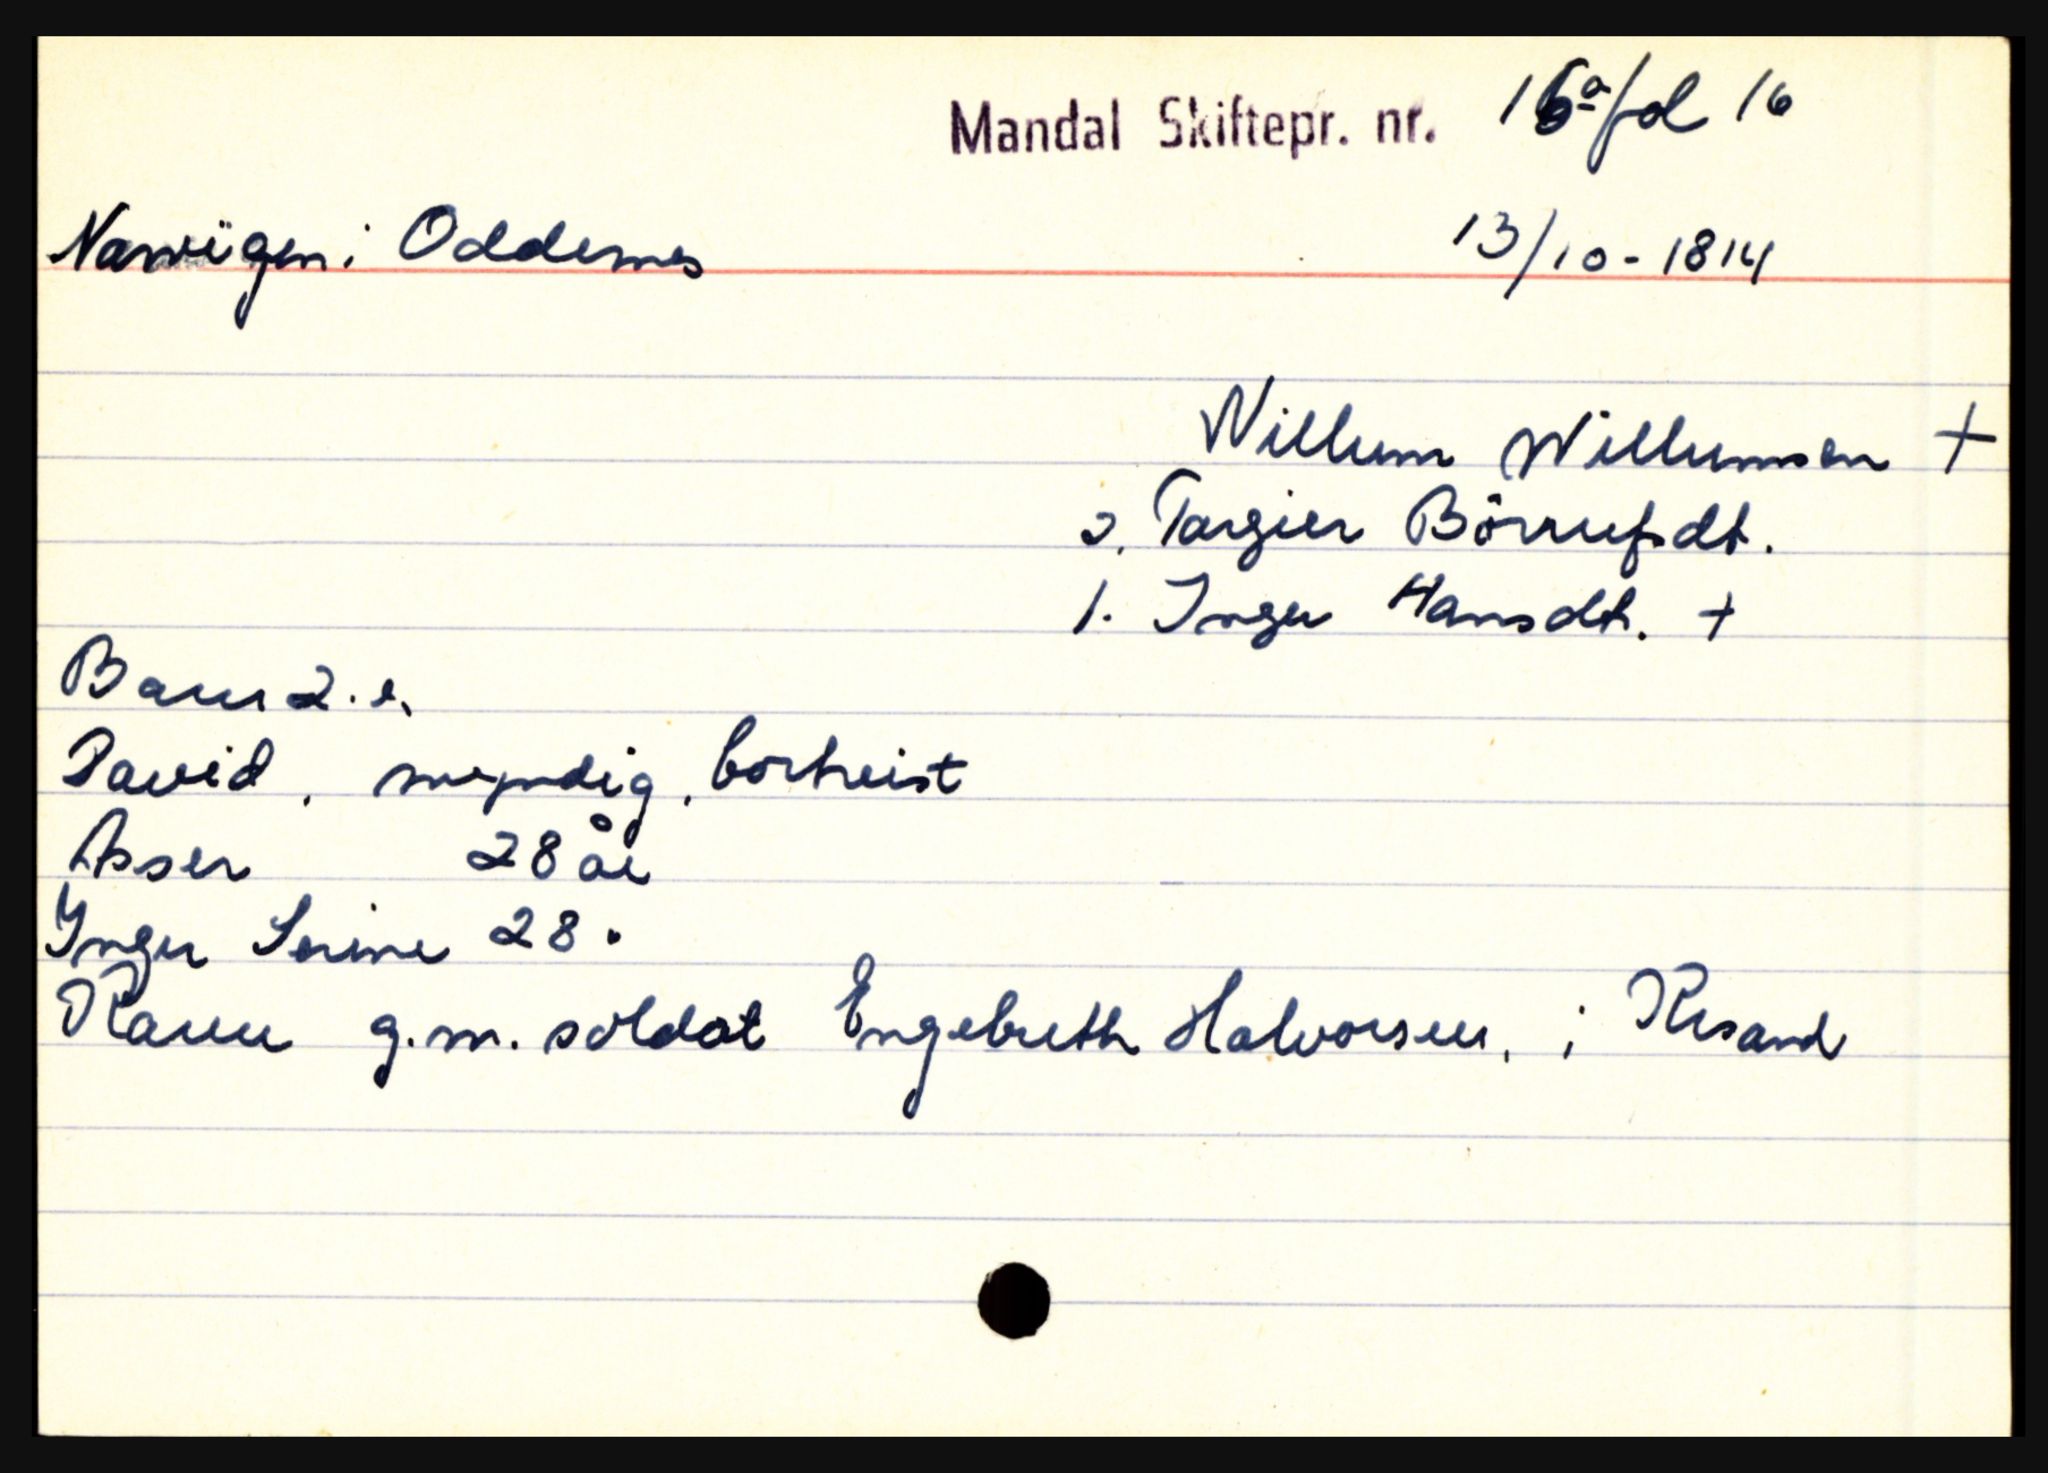 Mandal Skiftepr. nr. 16a/fol 16
Narvigen i Oddernes 13/10-1814
Willum Willumsen +
2. Targier Börrufsdt.
1. Inger Hansdt. +
Barn 2. e.
David, myndig, bortreist
Asser 28 år
Inger Serine 28 "
Karen g.m. soldat Engebreth Halvorsen, i Krsand